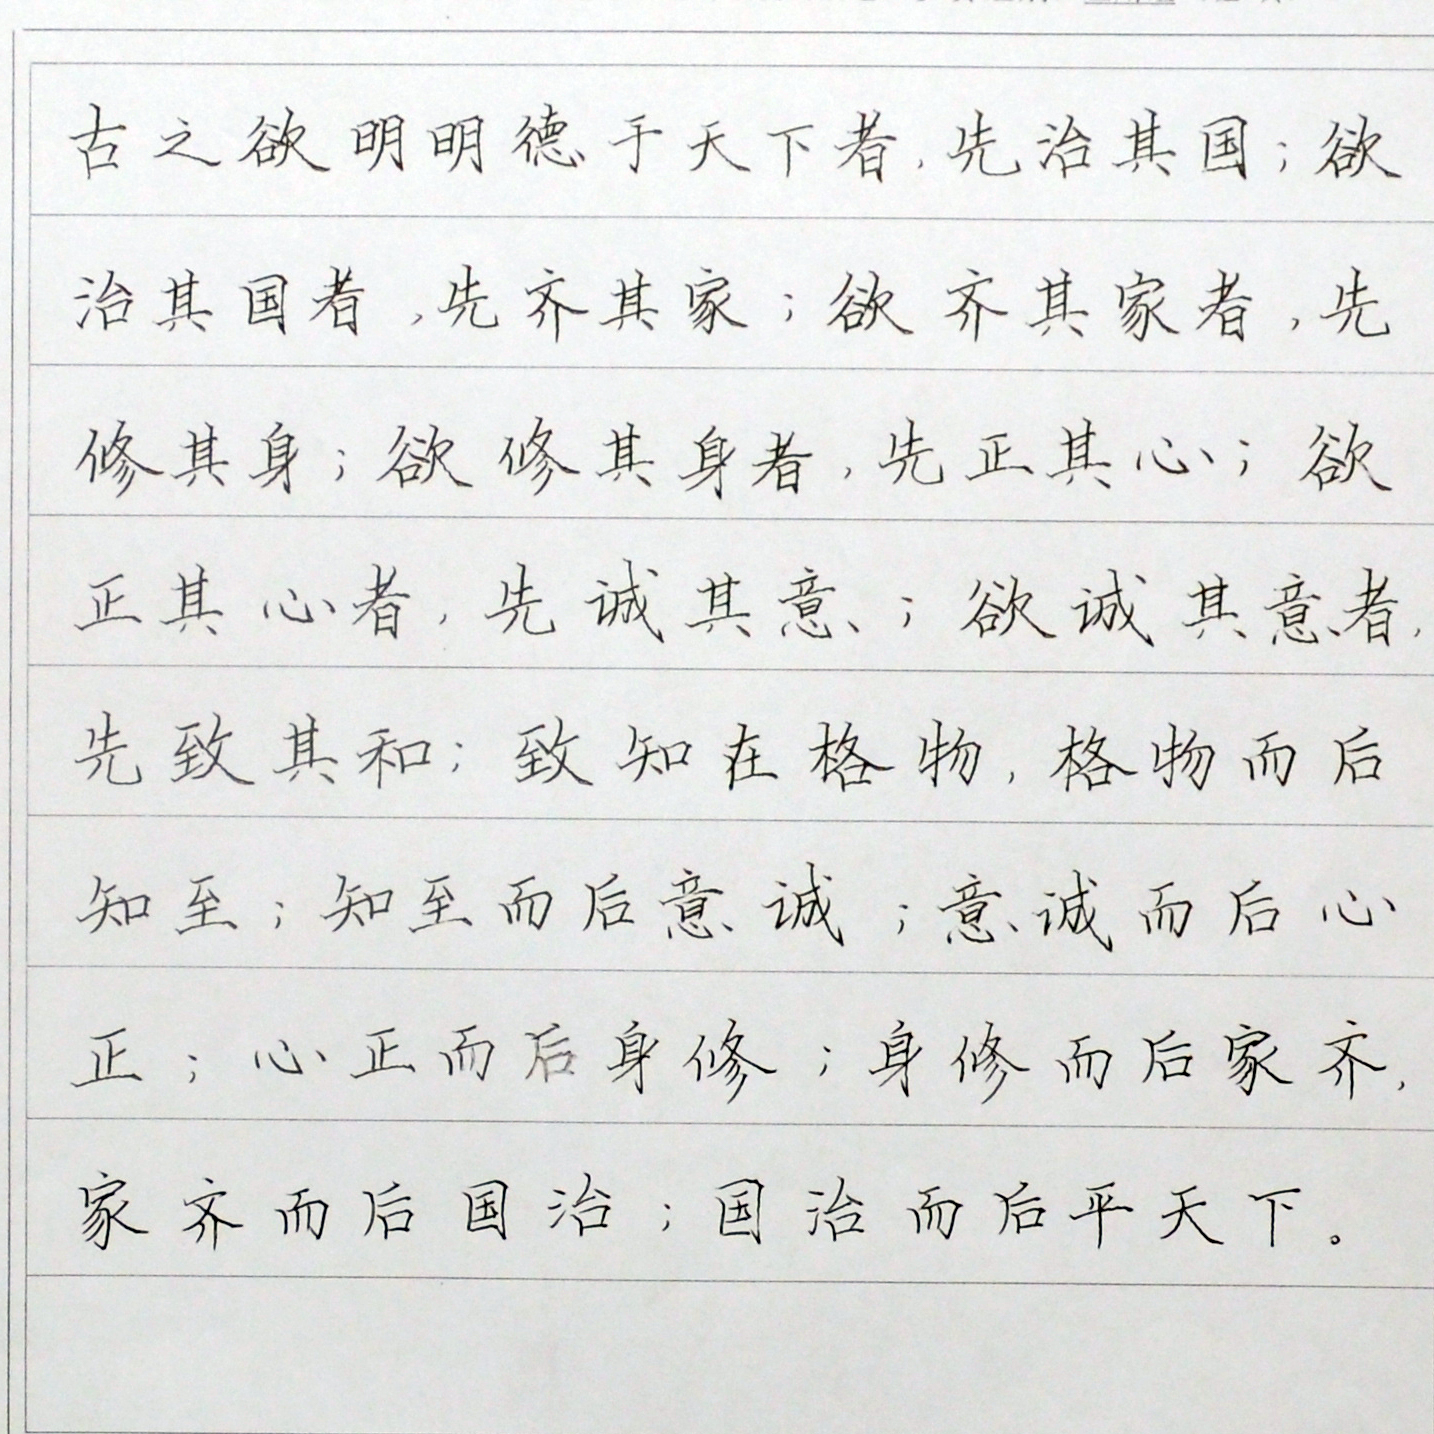 古之欲明明德于天下者,先治其国;欲
治其国者,先齐其家;欲齐其家者,先
修其身;欲修其身者,先正其心;欲
正其心者,先诚其意;欲诚其意者,
先致其和;致知在格物,格物而后
知至;知至而后意诚;意诚而后心
正;心正而后身修;身修而后家齐,
家齐而后国治;国治而后平天下。